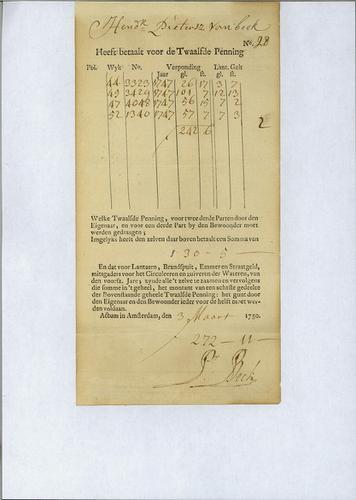 Hendk Dietersz van beek
No. 98
Heeft betaalt voor de Twaalfde Penning
Fol. Wyk No. Verponding Lant. Gelt
Jaar gl. st. gl. st.
44 3323 1747 26 17 3 7
49 3429 1747 101 7 12 13
47 4048 1747 56 15 7 2
52 1340 1747 57 7 7 3
242 6
2
Welke Twaalfde Penning, voor twee derde Parten door den
Eigenaar, en voor een derde Part by den Bewoonder moet
werden gedraagen;
Imgelyks heeft den zelven daar boven betaalt een Somma van
130 - 5 -
En dat voor Lantaarn, Brandspuit, Emmer en Straatgeld,
mitgaders voor het Circuleeren en zuiveren der Wateren, van
den voorsz. Jare; zynde alle 't zelve te zaamen en vervolgens
die somme in 't geheel, het montant van een schrifte gedeelte
der Bovenstaande geheele Twaalfde Penning: het gunt door
den Eigenaar en den Bewoonder ieder voor de helft moet wer-
den voldaan.
Actum in Amsterdam, den 3 Maart 1750.
272 - 11 -
Beek